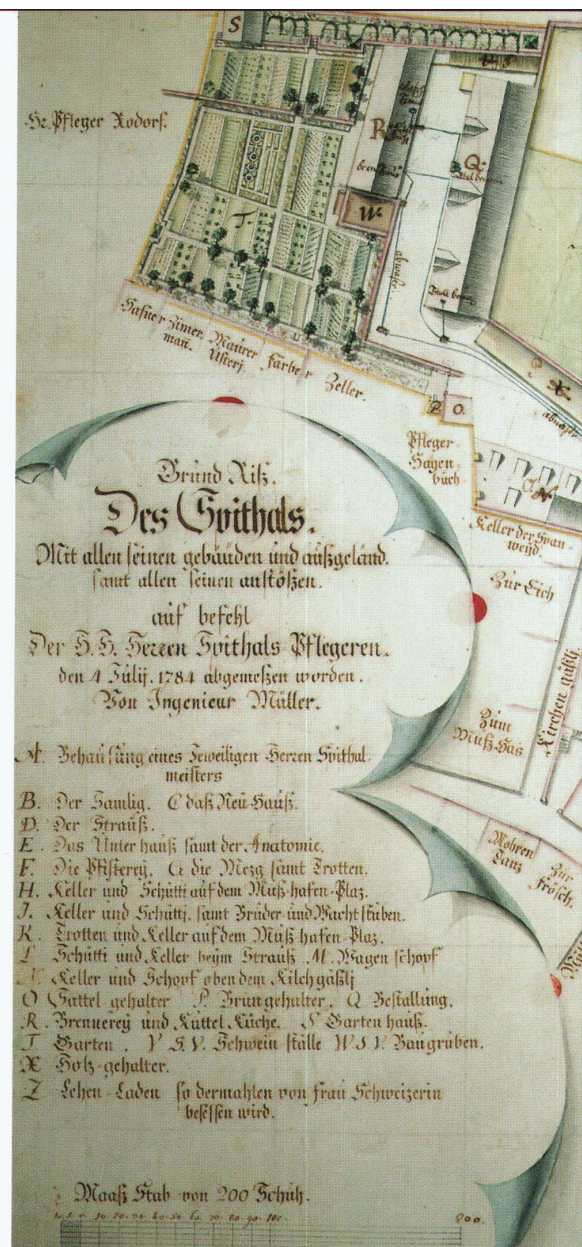 S
Hr. Pfleger Rodorf.
R
Q
W.
T.
Hafner Zimer Maurer Farber Zeller.
man. Usterj.
P. O.
Pfleger
Hagen
buch
N.
X
Keller der Span-
weyd.
Zur Eich
Zum
Mußhas
Kirchen gäßli
Mohren
Tanz
Zur
Frösch.
Grund Riß.
Des Spithals.
Mit allen seinen gebäuden und außgeländ.
samt allen seinen anstößen.
auf befehl
Der H. H. Herren Spithals-Pflegeren.
den 4 Julij. 1784 abgemeßen worden.
Von Ingenieur Müller.
A. Behausung eines Jeweiligen Herren Spithal-
meisters
B. Der Samlig. C daß Neu-Hauß.
D. Der Strauß.
E. Das Unter hauß samt der Anatomie.
F. Die Pfisterey. G die Mezg samt Trotten.
H. Keller und Schütti auf dem Muß-hafen-Plaz.
J. Keller und Schüttj. samt Bruder und Wacht stuben.
K. Trotten und Keller auf dem Muß hafen-Plaz.
L Schütti und Keller beym Strauß. M. Wagen schopf
N Keller und Schopf oben dem Kilchgäßlj
O Sattel gehalter P. Brungehalter. Q Bestallung.
R. Brennerey und Kuttel Küche. S Garten hauß.
T Garten. V S.V. Schwein ställe W S.V. Baugruben.
X Holz-gehalter.
Z Lehen-Laden so dermahlen von frau Schweizerin
beseßen wird.
Maaß Stab von 200 Schuh.
10. 20. 30. 40. 50. 60. 70. 80. 90. 100. 200.